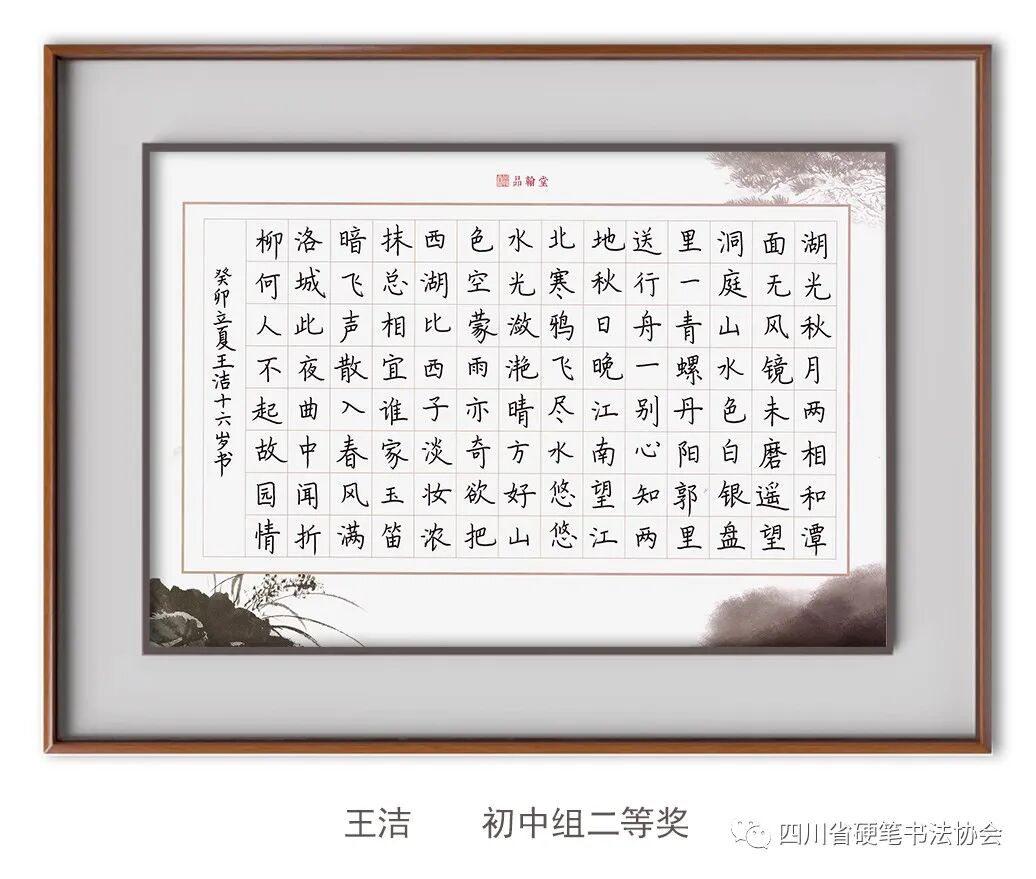 品翰堂
湖光秋月两相和潭
面无风镜未磨遥望
洞庭山水色白银盘
里一青螺丹阳郭里
送行舟一别心知两
地秋日晚江南望江
北寒鸦飞尽水悠悠
水光潋滟晴方好山
色空蒙雨亦奇欲把
西湖比西子淡妆浓
抹总相宜谁家玉笛
暗飞声散入春风满
洛城此夜曲中闻折
柳何人不起故园情
癸卯立夏王洁十六岁书
王洁 初中组二等奖
四川省硬笔书法协会